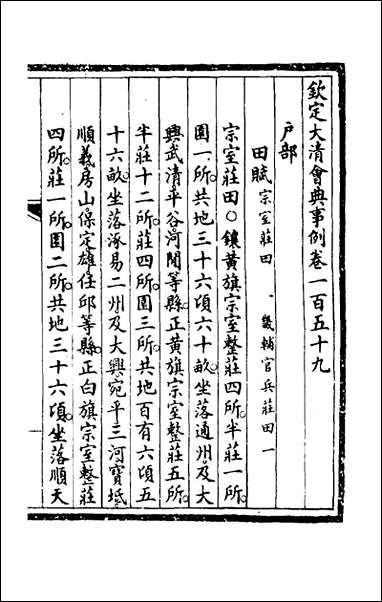 欽定大清會典事例卷一百五十九
户部
田賦宗室莊田 畿輔官兵莊田一
宗室莊田〇鑲黃旗宗室整莊四所。半莊一所。
園一所。共地三十六頃六十畝。坐落通州及大
興武清平谷河閒等縣。正黃旗宗室整莊五所。
半莊十二所。莊四所。園三所。共地百有六頃五
十六畝。坐落涿易二州及大興宛平三河寶坻
順義房山保定雄任邱等縣。正白旗宗室整莊
四所。莊一所。園二所。共地三十六頃。坐落順天